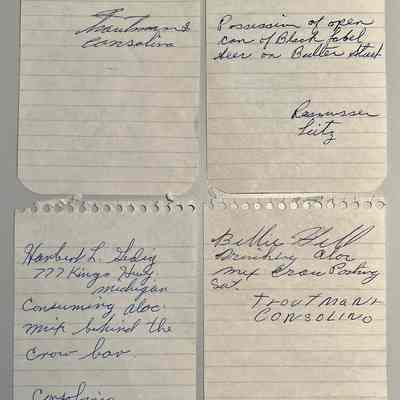 Troutman &
Consolino
Possession of open
can of Black Label
Beer on Butler Street
Rasmussen
Leitz
Herbert L. Gedig
777 Kings Hwy.
Michigan
Consuming aloc.
mix behind the
Crow bar
Consolino
Billie Hill
Drinking Aloc
mix Crow Parking
Sat.
TROUTMAN &
CONSOLINO